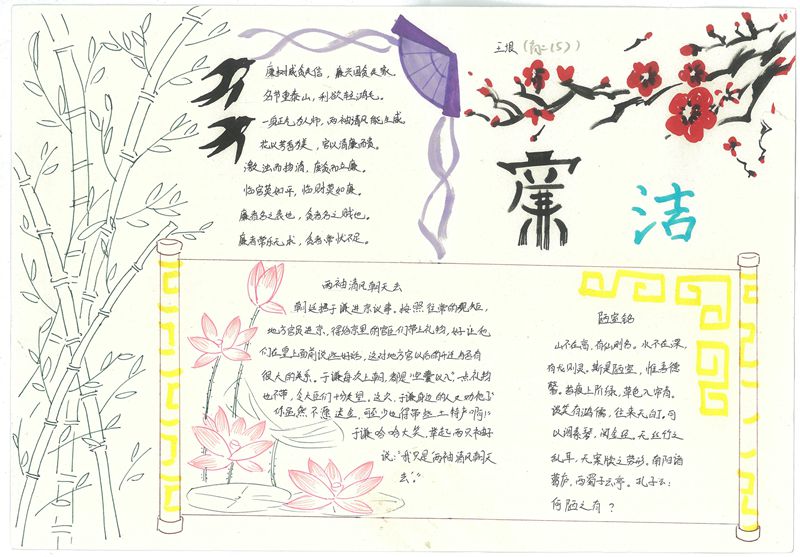 王垠（高二（5））
廉洁
廉树威贪是信，廉兴国贪是衰。
名节重泰山，利欲轻鸿毛。
一身正气为人师，两袖清风能生威。
花以芳香为美，官以清廉而贵。
激浊而扬清，废贪而立廉。
临官莫如平，临财莫如廉。
廉者名之表也，贪者名之贼也。
廉者常乐无求，贪者常忧不足。
两袖清风朝天去
朝廷把于谦进京议事。按照往常的规矩，
地方官员进京，得给京里的官臣们带上礼物，好让他
们在皇上面前说些好话，这对地方官以后的升迁与否有
很大的关系。于谦每次上朝，都是"空囊以入"一点礼物
也不带，令大臣们十分失望。这次，于谦身边的人又劝他："
你虽然不愿送金，可至少也得带些土特产啊"
于谦哈哈大笑，举起两只袖子
说："我只是两袖清风朝天
去"。"
陋室铭
山不在高，有仙则名。水不在深，
有龙则灵。斯是陋室，惟吾德
馨。苔痕上阶绿，草色入帘青。
谈笑有鸿儒，往来无白丁。可
以调素琴，阅金经，无丝竹之
乱耳，无案牍之劳形。南阳诸
葛庐，西蜀子云亭。孔子云：
何陋之有？